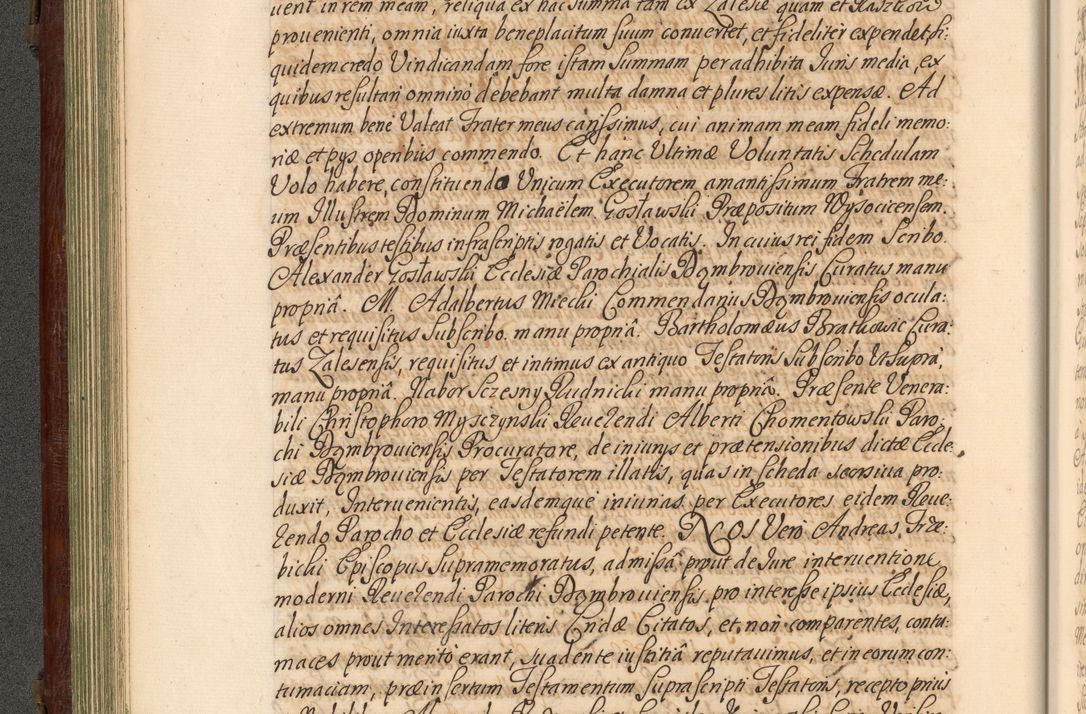 uent in rem meam, reliqua ex hac summa tam ex Zalesiæ quam et Raszkow
prouenienti, omnia iuxta beneplacitum suum conuertet, et fideliter expendet, si:
quidem credo Vindicandam fore istam Summam per adhibita Iuris media, ex
quibus resultari omnino debebant multa damna et plures litis expensæ. Ad
extremum bene Valeat Frater meus carissimus, cui animam meam fideli memo:
riæ et pys operibus commendo. Et hanc Ultimæ Voluntatis Schedulam
Volo habere, constituendo Unicum Executorem amantissimum Fratrem me:
um Illustrem Dominum Michaëlem Gosławski Præpositum Wysocicensem.
Præsentibus testibus infrascriptis rogatis et Vocatis. In cuius rei fidem Scribo.
Alexander Gosławski Ecclesiæ Parochialis Dąmbrouiensis Curatus manu
propriâ. M. Adalbertus Miecki Commendarius Dąmbrouiensis ocula:
tus et requisitus Subscribo. manu propriâ. Bartholomæus Bratkowic Cura:
tus Zalesensis, requisitus et intimus ex antiquo Testatoris Subscribo Ut supra,
manu propriâ. Nabor Sczesny Rudnicki manu propriâ. Præsente Venera:
bili Christophoro Myszczynski Reuerendi Alberti Chomentowski Paro:
chi Dąmbrouiensis Procuratore, de iniurys et prætensionibus dictæ Eccle:
siæ Dąmbrouiensis per Testatorem illatis, quas in scheda seorsiua pro:
duxit, Interuenientis, easdemque iniurias per Executores eidem Reue:
rendo Parocho et Ecclesiæ refundi petente. NOS Vero Andreas Trze:
bicki Episcopus Supramemoratus, admissâ prout de Iure interuentione
moderni Reuerendi Parochi Dąmbrouiensis pro interesse ipsius Ecclesiæ,
alios omnes Interessatos literis Cridæ Citatos, et non comparentes, contu:
maces prout merito erant, suadente iustitiâ reputauimus, et in eorum con:
tumaciam, præinsertum Testamentum Suprascripti Testatoris, recepto prius